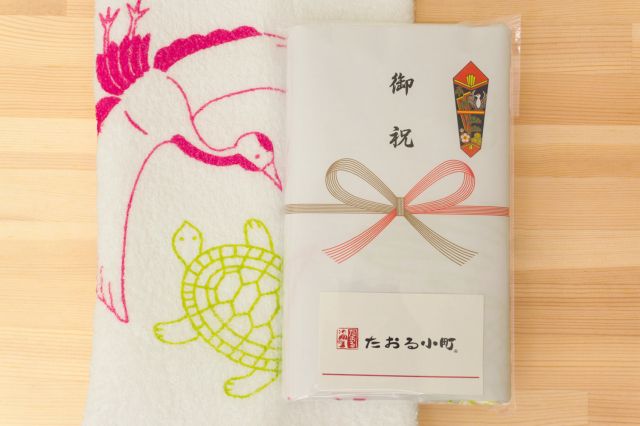 御祝
たおる小町®